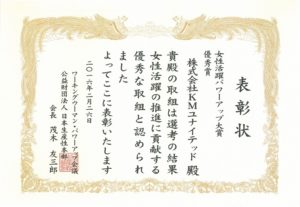 表彰状
女性活躍パワーアップ大賞
優秀賞
株式会社KMユナイテッド 殿
貴殿の取組は選考の結果
女性活躍の推進に貢献する
優秀な取組と認められ
ました
よってここに表彰いたします
二〇一六年二月二六日
ワーキングウーマン・パワーアップ会議
公益財団法人 日本生産性本部
会長 茂木 友三郎